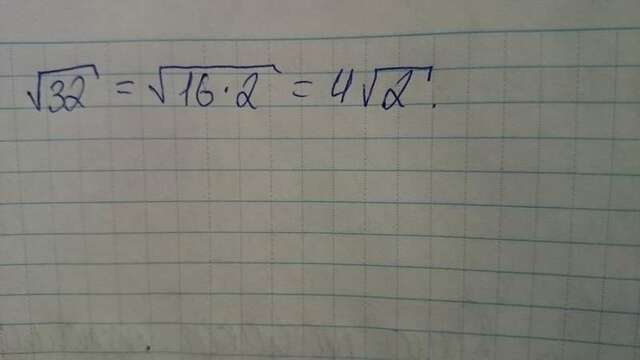 √32 = √16·2 = 4√2.